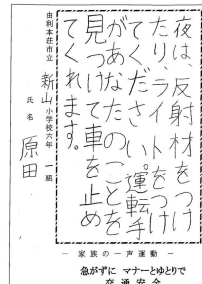 夜は、反射材をつけ
たり、ライトをつけ
てください。運転手
があなたのことを
見つけて車を止め
てくれます。
由利本荘市立 新山小学校六年 一組
氏名 原田
― 家族の一声運動 ―
急がずに マナーとゆとりで
交通安全